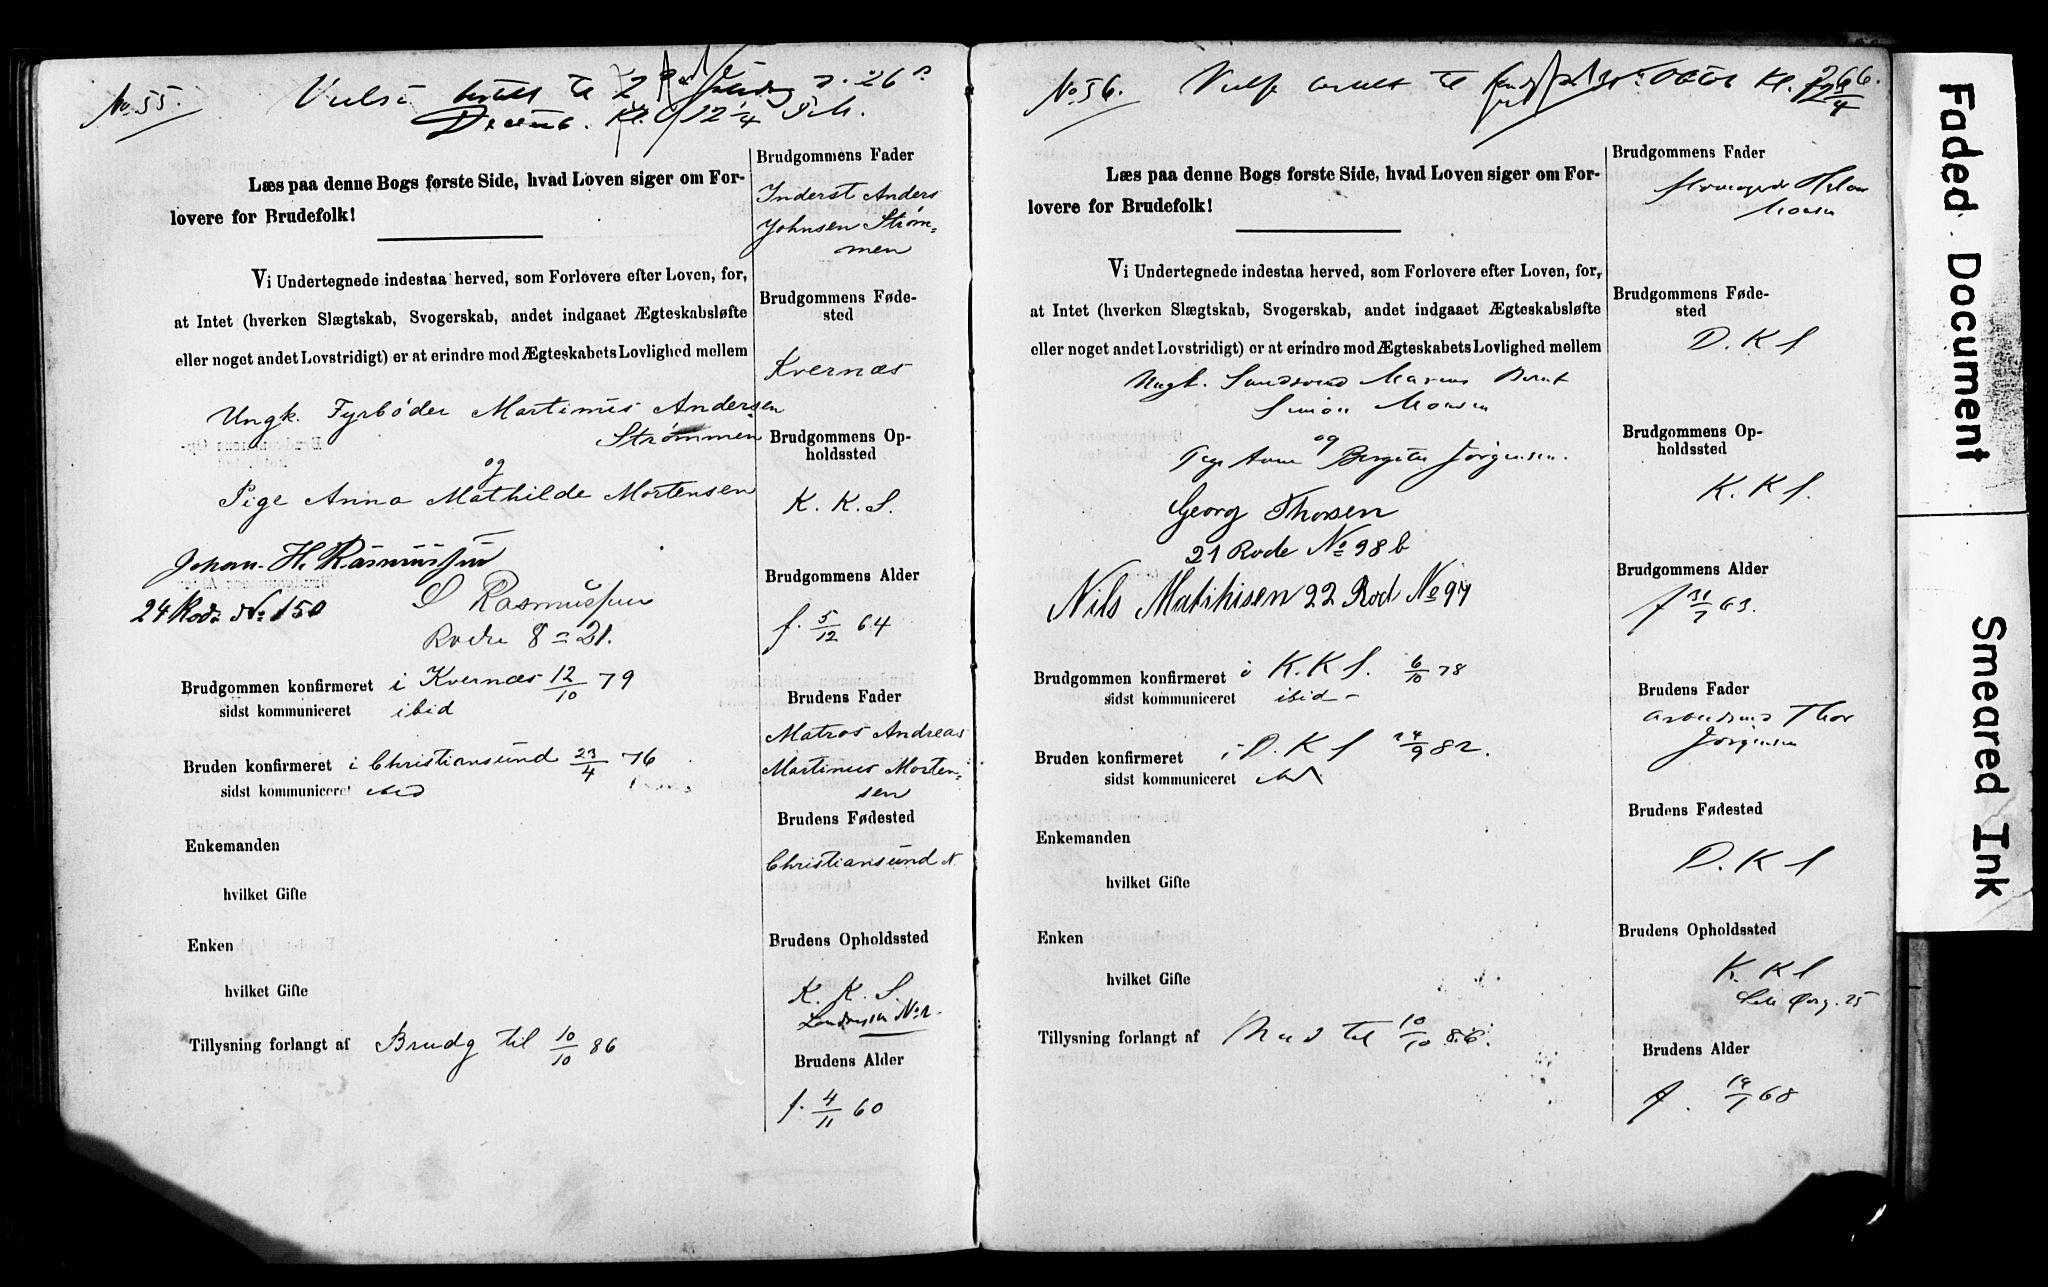 No. 55.
Vielse bestilt til 2 Juledag d. 26
Decemb. Kl. 12 1/4
Læs paa denne Bogs første Side, hvad Loven siger om For-
lovere for Brudefolk!
Vi Undertegnede indestaa herved, som Forlovere efter Loven, for,
at Intet (hverken Slægtskab, Svogerskab, andet indgaaet Ægteskabsløfte
eller noget andet Lovstridigt) er at erindre mod Ægteskabets Lovlighed mellem
Ungk. Fyrbøder Martinus Andersen
Strømmen
og
Pige Anna Mathilde Mortensen
Johan. H. Rasmussen
24 Rode No 150
S Rasmussen
Rode 8 = 21.
Brudgommen konfirmeret i Kvernæs 12/10 79
sidst kommuniceret ibid
Bruden konfirmeret i Christiansund 23/4 76
sidst kommuniceret ibid
Enkemanden
hvilket Gifte
Enken
hvilket Gifte
Tillysning forlangt af Brudg til 10/10 86
Brudgommens Fader
Inderst Anders
Johnsen Strøm=
men
Brudgommens Føde-
sted
Kvernæs
Brudgommens Op-
holdssted
K. K. S.
Brudgommens Alder
f. 5/12 64
Brudens Fader
Matros Andreas
Martinus Morten=
sen
Brudens Fødested
Christiansund N.
Brudens Opholdssted
K. K. S.
No 2.
Brudens Alder
f. 4/11 60
266.
No. 56.
til Kl. 12 3/4
Læs paa denne Bogs første Side, hvad Loven siger om For-
lovere for Brudefolk!
Vi Undertegnede indestaa herved, som Forlovere efter Loven, for,
at Intet (hverken Slægtskab, Svogerskab, andet indgaaet Ægteskabsløfte
eller noget andet Lovstridigt) er at erindre mod Ægteskabets Lovlighed mellem
Ungk. Marius Bernt
Simon Monsen
og
Pige Anne Bergitte Jørgensen.
Georg Thorsen
21 Rode No 98 b
Nils Mathisen 22 Rod No 97
Brudgommen konfirmeret i K. K S. 6/10 78
sidst kommuniceret ibid -
Bruden konfirmeret i D. K S 24/9 82.
sidst kommuniceret ibid
Enkemanden
hvilket Gifte
Enken
hvilket Gifte
Tillysning forlangt af til 10/10 86.
Brudgommens Fader
Monsen
Brudgommens Føde-
sted
D. K S
Brudgommens Op-
holdssted
K. K S.
Brudgommens Alder
f 31/7 63.
Brudens Fader
Arbeidsmd Thor
Jørgensen
Brudens Fødested
D. K S
Brudens Opholdssted
K. K S
25
Brudens Alder
f. 19/1 68
Faded Document
Smeared Ink